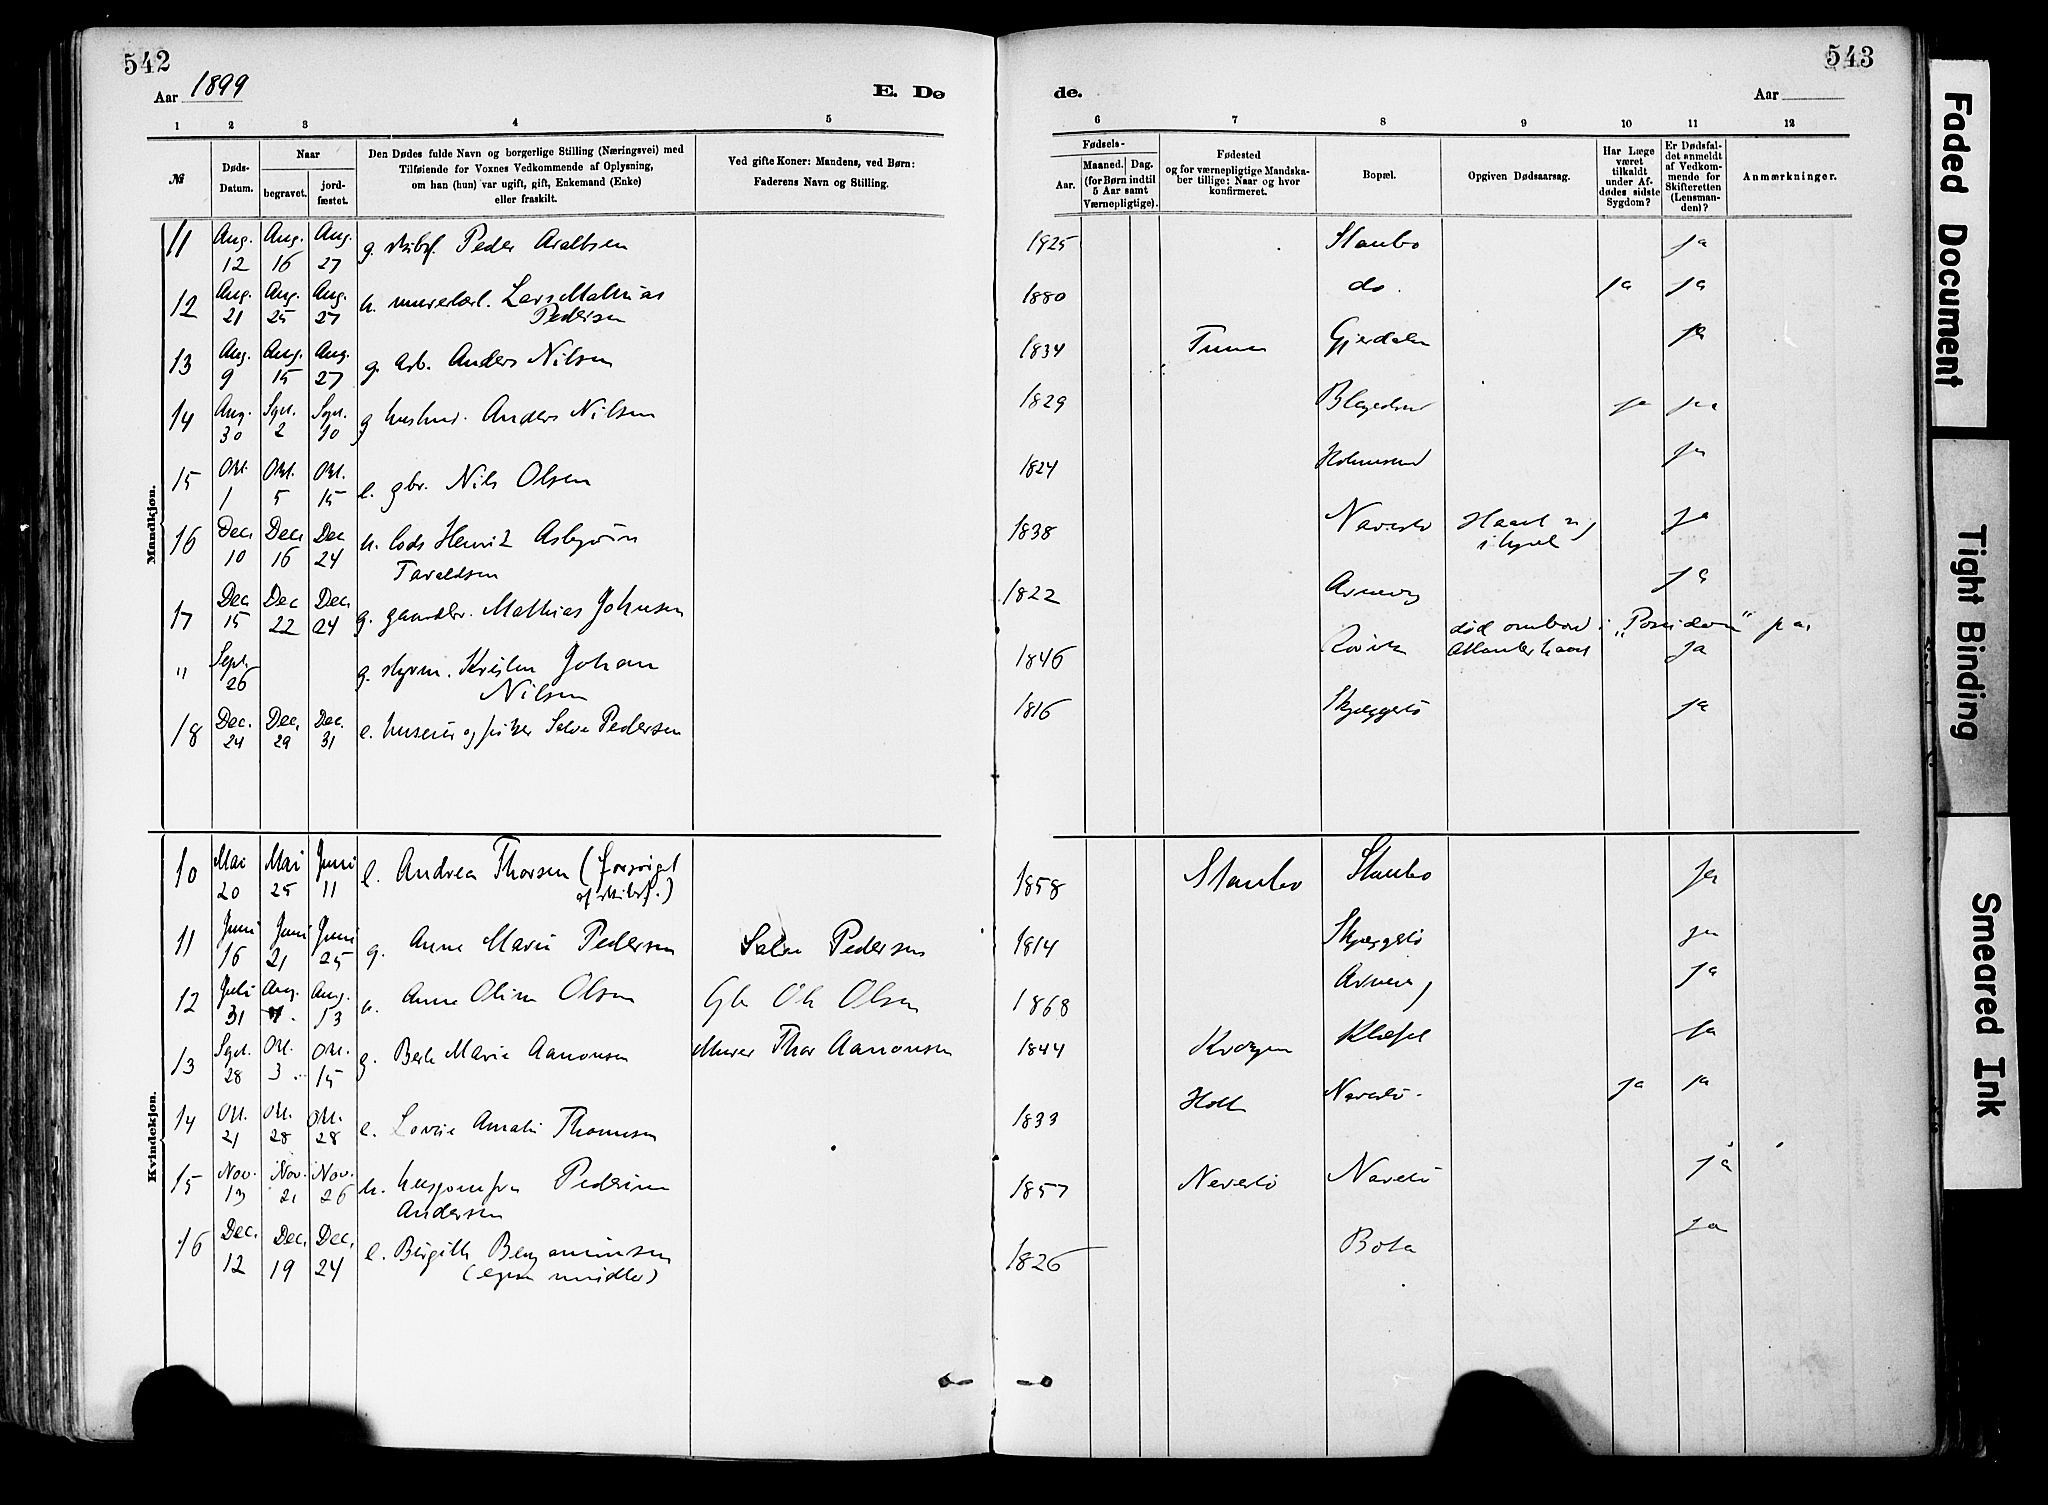 542
Aar 1899
E. Dø
1 2 3 4 5
№
Døds-
Datum.
Naar
begravet.
jord-
fæstet.
Den Dødes fulde Navn og borgerlige Stilling (Næringsvei) med
Tilføiende for Voxnes Vedkommende af Oplysning,
om han (hun) var ugift, gift, Enkemand (Enke)
eller fraskilt.
Ved gifte Koner: Mandens, ved Børn:
Faderens Navn og Stilling.
Mandkjøn.
11 Aug. 12 Aug. 16 Aug. 27 g. skibsf. Peder
12 Aug. 21 Aug. 25 Aug. 27 u. Lars Mathias
Pedersen
13 Aug. 9 Aug. 15 Aug. 27 g. arb. Anders Nilsen
14 Aug. 30 Sept. 2 Sept. 10 g Anders Nilsen
15 Okt. 1 Okt. 5 Okt. 15 e. gbr. Nils Olsen
16 Dec. 10 Dec. 16 Dec 24 u. lods Henrik Asbjørn
Taraldsen
17 Dec. 15 Dec 22 Dec. 24 g. gaardbr. Mathias Johnsen
" Sept. 26 g. styrm. Kristen Johan
Nilsen
18 Dec. 24 Dec. 29 Dec. 31 e. huseier og fisker Salve Pedersen
Kvindekjøn.
10 Mai 20 Mai 25 Juni 11 e. Andrea Thorsen (forsørget
af skibsf.)
11 Juni 16 Juni 21 Juni 25 g. Anne Marie Pedersen Salve Pedersen
12 Juli 31 Aug. Aug. 13 u. Anne Oline Olsen Gbr Ole Olsen
13 Sept. 28 Okt. 3 Okt. 15 g. Berte Marie Aanonsen Murer Thor Aanonsen
14 Okt. 21 Okt. 28 Okt. 28 e. Lovise Amalie Thomsen
15 Nov. 13 Nov. 21 Nov. 26 u. husjomfru Pederine
Andersen
16 Dec. 12 Dec. 19 Dec. 24 e. Birgitte Benjaminsen
(egne midler)
543
de.
Aar
6 7 8 9 10 11 12
Fødsels-
Aar.
Maaned. Dag.
(for Børn indtil
5 Aar samt
Værnepligtige).
Fødested
og for værnepligtige Mandska-
ber tillige: Naar og hvor
konfirmeret.
Bopæl.
Opgiven Dødsaarsag.
Har Læge
været
tilkaldt
under Af-
dødes sidste
Sygdom?
Er Dødsfal-
det anmeldt
af Vedkom-
mende for
Skifteretten
(Lensman-
den)?
Anmærkninger.
1925 Staubo ja
1880 do. ja ja
1834 Gjerdalen ja
1829 ja ja
1824 Holmesund ja
1838 Navestø ja
1822 Arnevig ja
død ombord i "Poseidon" paa
1846 Atlanterhavet ja
1816 Skjæggestø ja
1858 Staubo Staubo ja
1814 Skjæggestø ja
1868 Arnevig ja
1844 ja
1833 Holt Navestø. ja ja
1857 Navestø Navestø ja
1826 Bota ja
Faded Document
Tight Binding
Smeared Ink